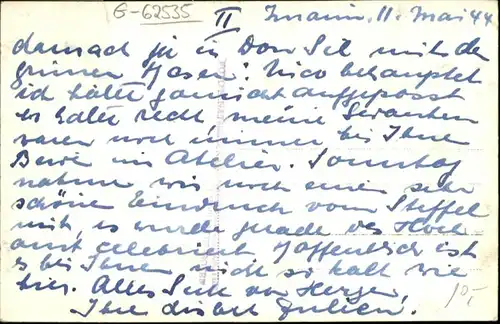 G-62535
II
11. Mai 44
damach ja in Don Sil mit der
grünen Hosen! Nico behauptet
ich hätte garnicht aufgepasst
er hatte recht meine Gedanken
waren noch immer bei Ihne
im Atelier. Sonntag
nahme wir noch einen sehr
schöne Eindruck vom Steffel
mit, es wurde gerade das Hoch
amt celebriert. Hoffentlich ist
es bei Ihnen nicht so kalt wie
hier. Alles von Herzen,
Ihre
10,-